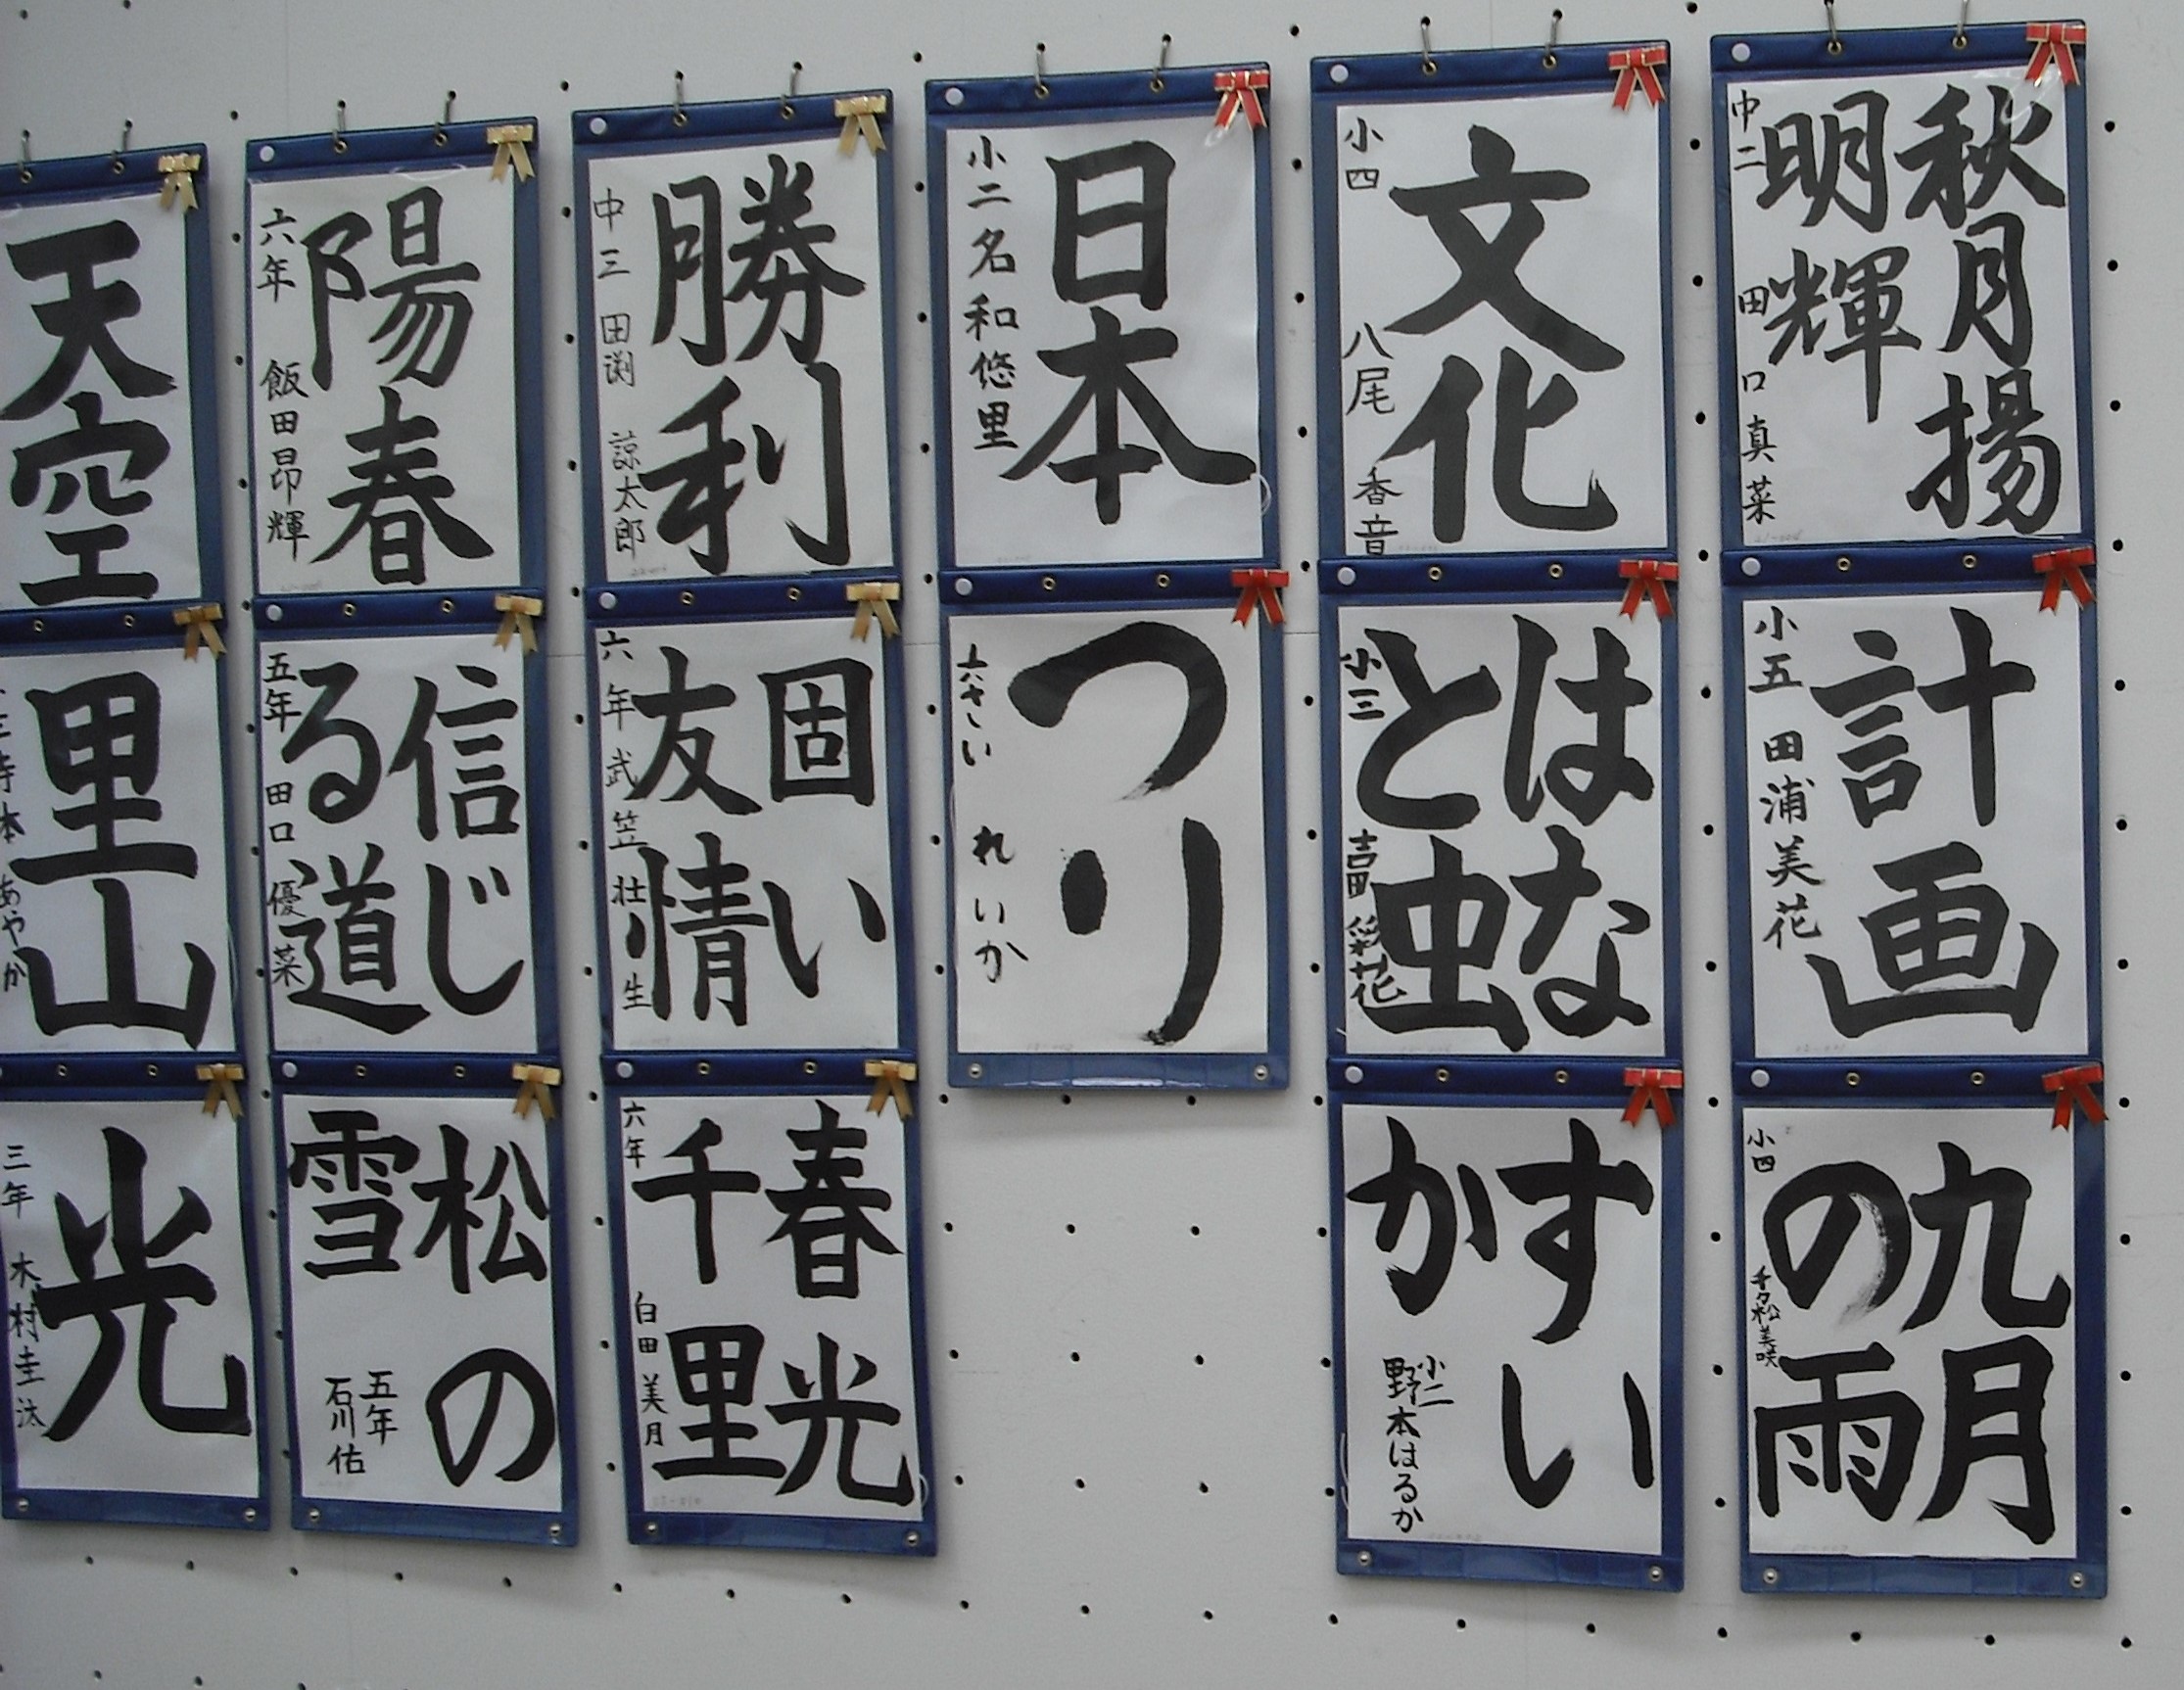 秋月揚
明輝
中二 田口真菜
計画
小五 田浦美花
九月
の雨
小四 千々松美咲
文化
小四 八尾香音
はな
と虫
小三 吉田彩花
すい
か
小二
野本はるか
日本
小二 名和悠里
つり
六さい れいか
勝利
中三 田渕諒太郎
固い
友情
六年 武笠壮生
春光
千里
六年 白田美月
陽春
六年 飯田昂輝
信じ
る道
五年 田口優菜
松の
雪
五年
石川佑
天空
里山
寺本あやか
光
三年 木村圭汰